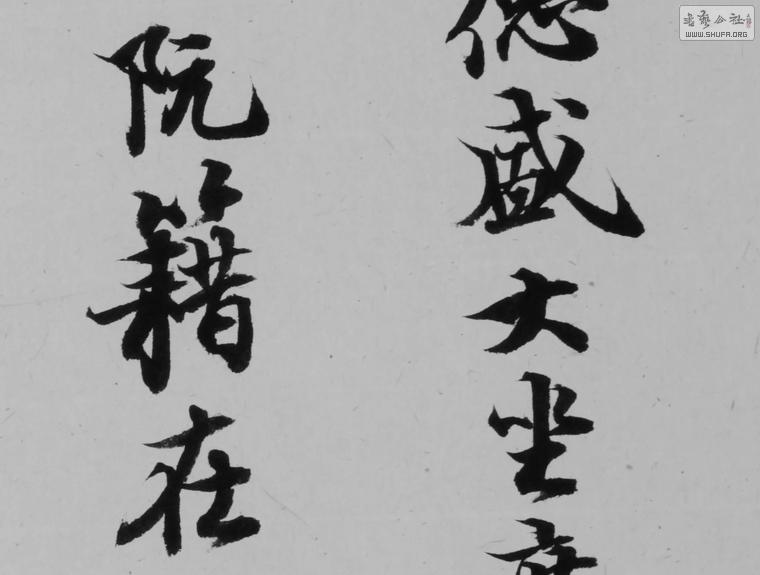 德盛大坐
阮籍在
書藝公社
WWW.SHUFA.ORG